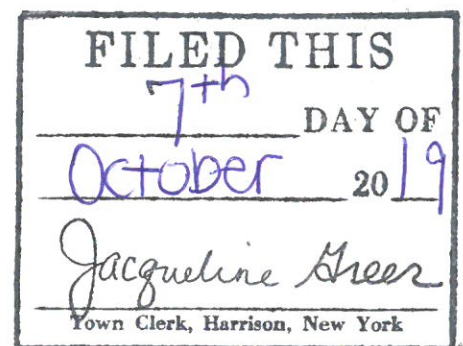 FILED THIS
7th DAY OF
October 2019
Jacqueline Greer
Town Clerk, Harrison, New York